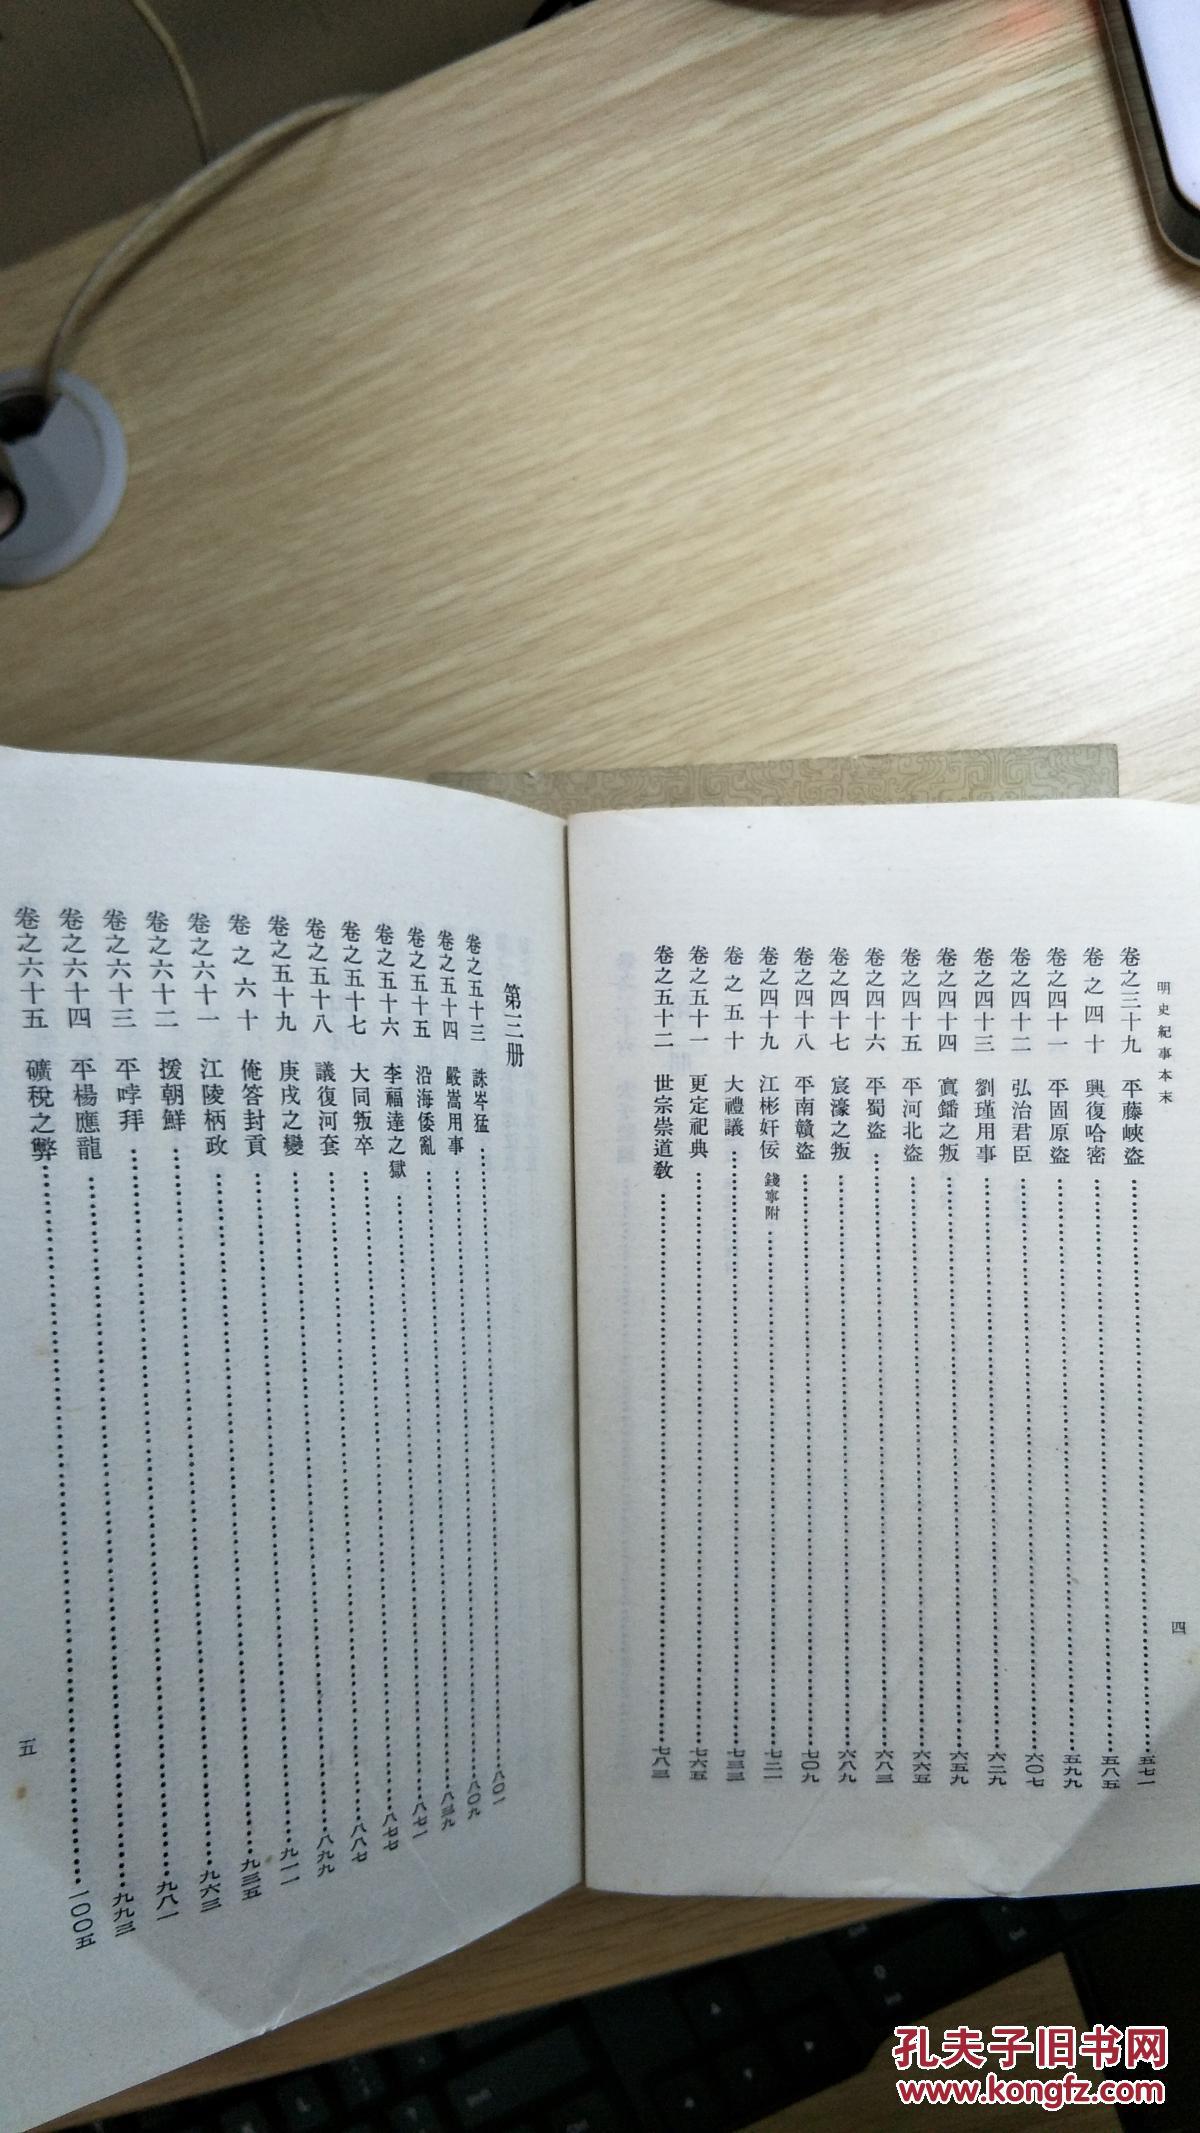 明史紀事本末
四
卷之三十九 平藤峽盜……五七一
卷之四十 興復哈密……五八五
卷之四十一 平固原盜……五九九
卷之四十二 弘治君臣……六〇七
卷之四十三 劉瑾用事……六二九
卷之四十四 寘鐇之叛……六五九
卷之四十五 平河北盜……六六五
卷之四十六 平蜀盜……六八三
卷之四十七 宸濠之叛……六八九
卷之四十八 平南贛盜……七〇九
卷之四十九 江彬奸佞 錢寧附……七二一
卷之五十 大禮議……七三三
卷之五十一 更定祀典……七六五
卷之五十二 世宗崇道教……七八三
第三册
卷之五十三 誅岑猛……八〇一
卷之五十四 嚴嵩用事……八〇九
卷之五十五 沿海倭亂……八三九
卷之五十六 李福達之獄……八七一
卷之五十七 大同叛卒……八七七
卷之五十八 議復河套……八八七
卷之五十九 庚戌之變……八九九
卷之六十 俺答封貢……九一一
卷之六十一 江陵柄政……九三五
卷之六十二 援朝鮮……九六三
卷之六十三 平哱拜……九八一
卷之六十四 平楊應龍……九九三
卷之六十五 礦稅之弊……一〇〇五
五
孔夫子旧书网
www.kongfz.com